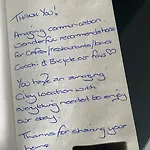 Thank You!
Amazing communication
Wonderful recommendations
for Coffee/restaurants/bars
Cucchi & Bicycle our favs ♡
You have an amazing
City location with
everything needed to enjoy
our stay.
Thanks for sharing your
home